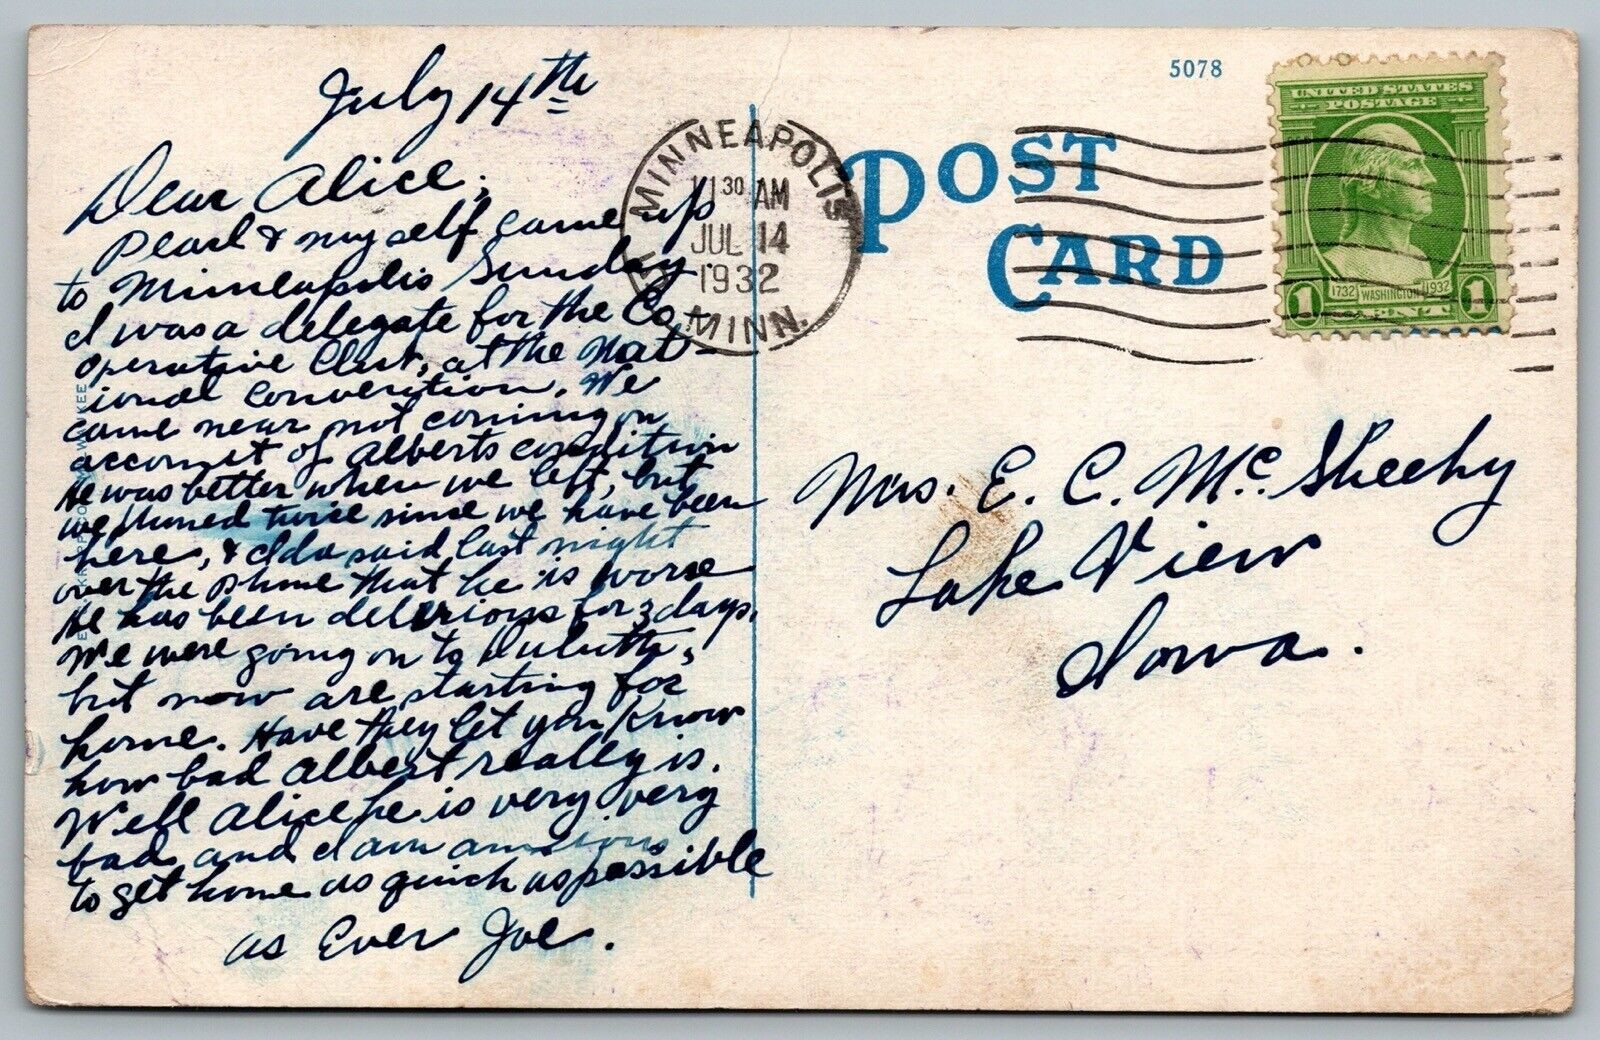 July 14th
Dear Alice;
Pearl & myself came up
to Minneapolis Sunday.
I was a delegate for the Co-
operative Clert, at the Nat-
ional Convention. We
came near not coming on
account of Alberts condition
He was better when we left, but
we phoned twice since we have been
here, & Ida said last night
over the phone that he is worse
He has been delirious for 3 days.
We were going on to Duluth,
but now are starting for
home. Have they let you know
how bad Albert really is.
Well Alice he is very very
bad and I am anxious
to get home as quick as possible
as Ever Joe.
MINNEAPOLIS
11 30 AM
JUL 14
1932
MINN.
5078
POST
CARD
UNITED STATES
POSTAGE
1732 WASHINGTON 1932
1 CENT 1
Mrs. E. C. McSheehy
Lake View
Iowa.